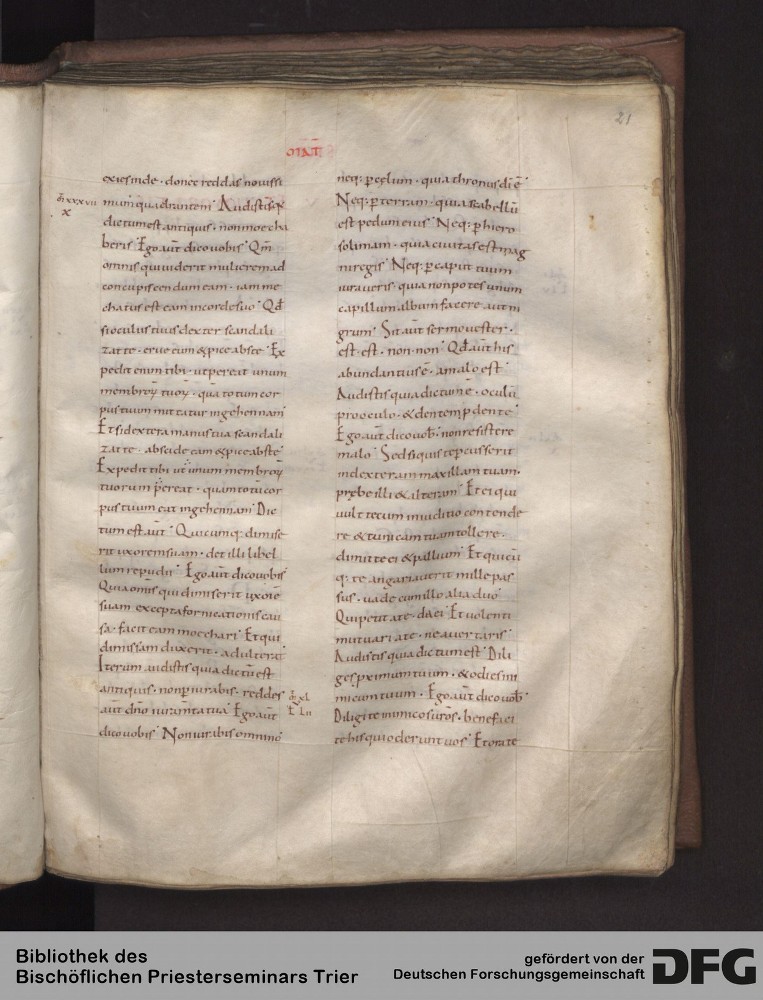 21
MAT
exies inde · donec reddas novissi
mum quadrantem Audistis qa
dictum est antiquis · non moecha
beris Ego aut dico vobis Qm
omnis qui viderit mulierem ad
concupiscendum eam · iam me
chatus est eam in corde suo Qd
si oculus tuus dexter scandali
zat te · erue eum & pice abs te Ex
pedit enim tibi · ut pereat unum
membroꝝ tuoꝝ · qua totum cor
pus tuum mittatur in gehennam
Et si dextera manus tua scandali
zat te · abscide eam & pice abs te
Expedit tibi ut unum membroꝝ
tuorum pereat · quam totu cor
pus tuum eat in gehennam Dic
tum est aut Quicumq; dimise
rit uxorem suam · det illi libel
lum repudii Ego aut dico vobis
Quia omis qui dimiserit uxore
suam excepta fornicationis cau
sa · facit eam moechari Et qui
dimissam duxerit · adulterat
Iterum audistis quia dictu est
antiquis · non piurabis · reddes
aut dno iuramta tua Ego aut
dico vobis Non iurabis omnino
m xxxvii
x
m xl
neq; p celum · quia thronus di e
Neq; p terram · quia scabellu
est pedum eius Neq; p hiero
solimam · quia civitas est mag
ni regis Neq; p caput tuum
iuraveris · quia non potes unum
capillum album facere aut ni
grum Sit aut sermo vester ·
est · est · non · non Qd aut his
abundantius e · a malo est
Audistis quia dictum e · oculu
pro oculo · & dentem p dente
Ego aut dico vob · non resistere
malo Sed si quis te pcusserit
in dexteram maxillam tuam ·
prebe illi & alteram Et ei qui
uult tecum in iuditio contende
re & tunicam tuam tollere ·
dimitte ei & pallium Et quicu
q; te angariaverit mille pas
sus · vade cum illo alia duo
Qui petit a te · da ei Et volenti
mutuari a te · ne avertaris
Audistis quia dictum est Dili
ges pximum tuum · & odies ini
micum tuum · Ego aut dico vob
Diligite inimicos uros · benefaci
te his qui oderunt vos Et orate
Bibliothek des
Bischöflichen Priesterseminars Trier
gefördert von der
Deutschen Forschungsgemeinschaft
DFG